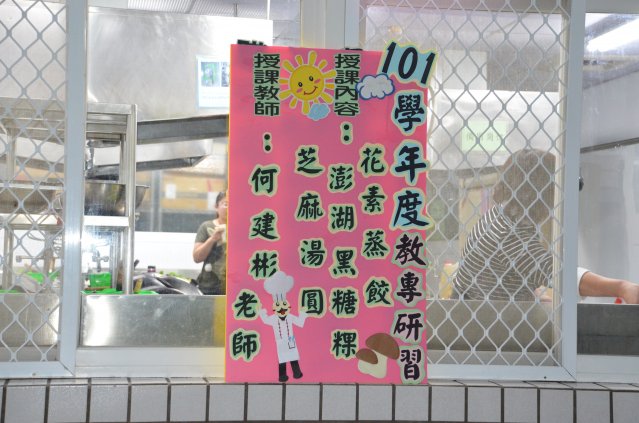 101學年度教專研習
授課內容：
花素蒸餃
澎湖黑糖粿
芝麻湯圓
授課教師：
何建彬老師